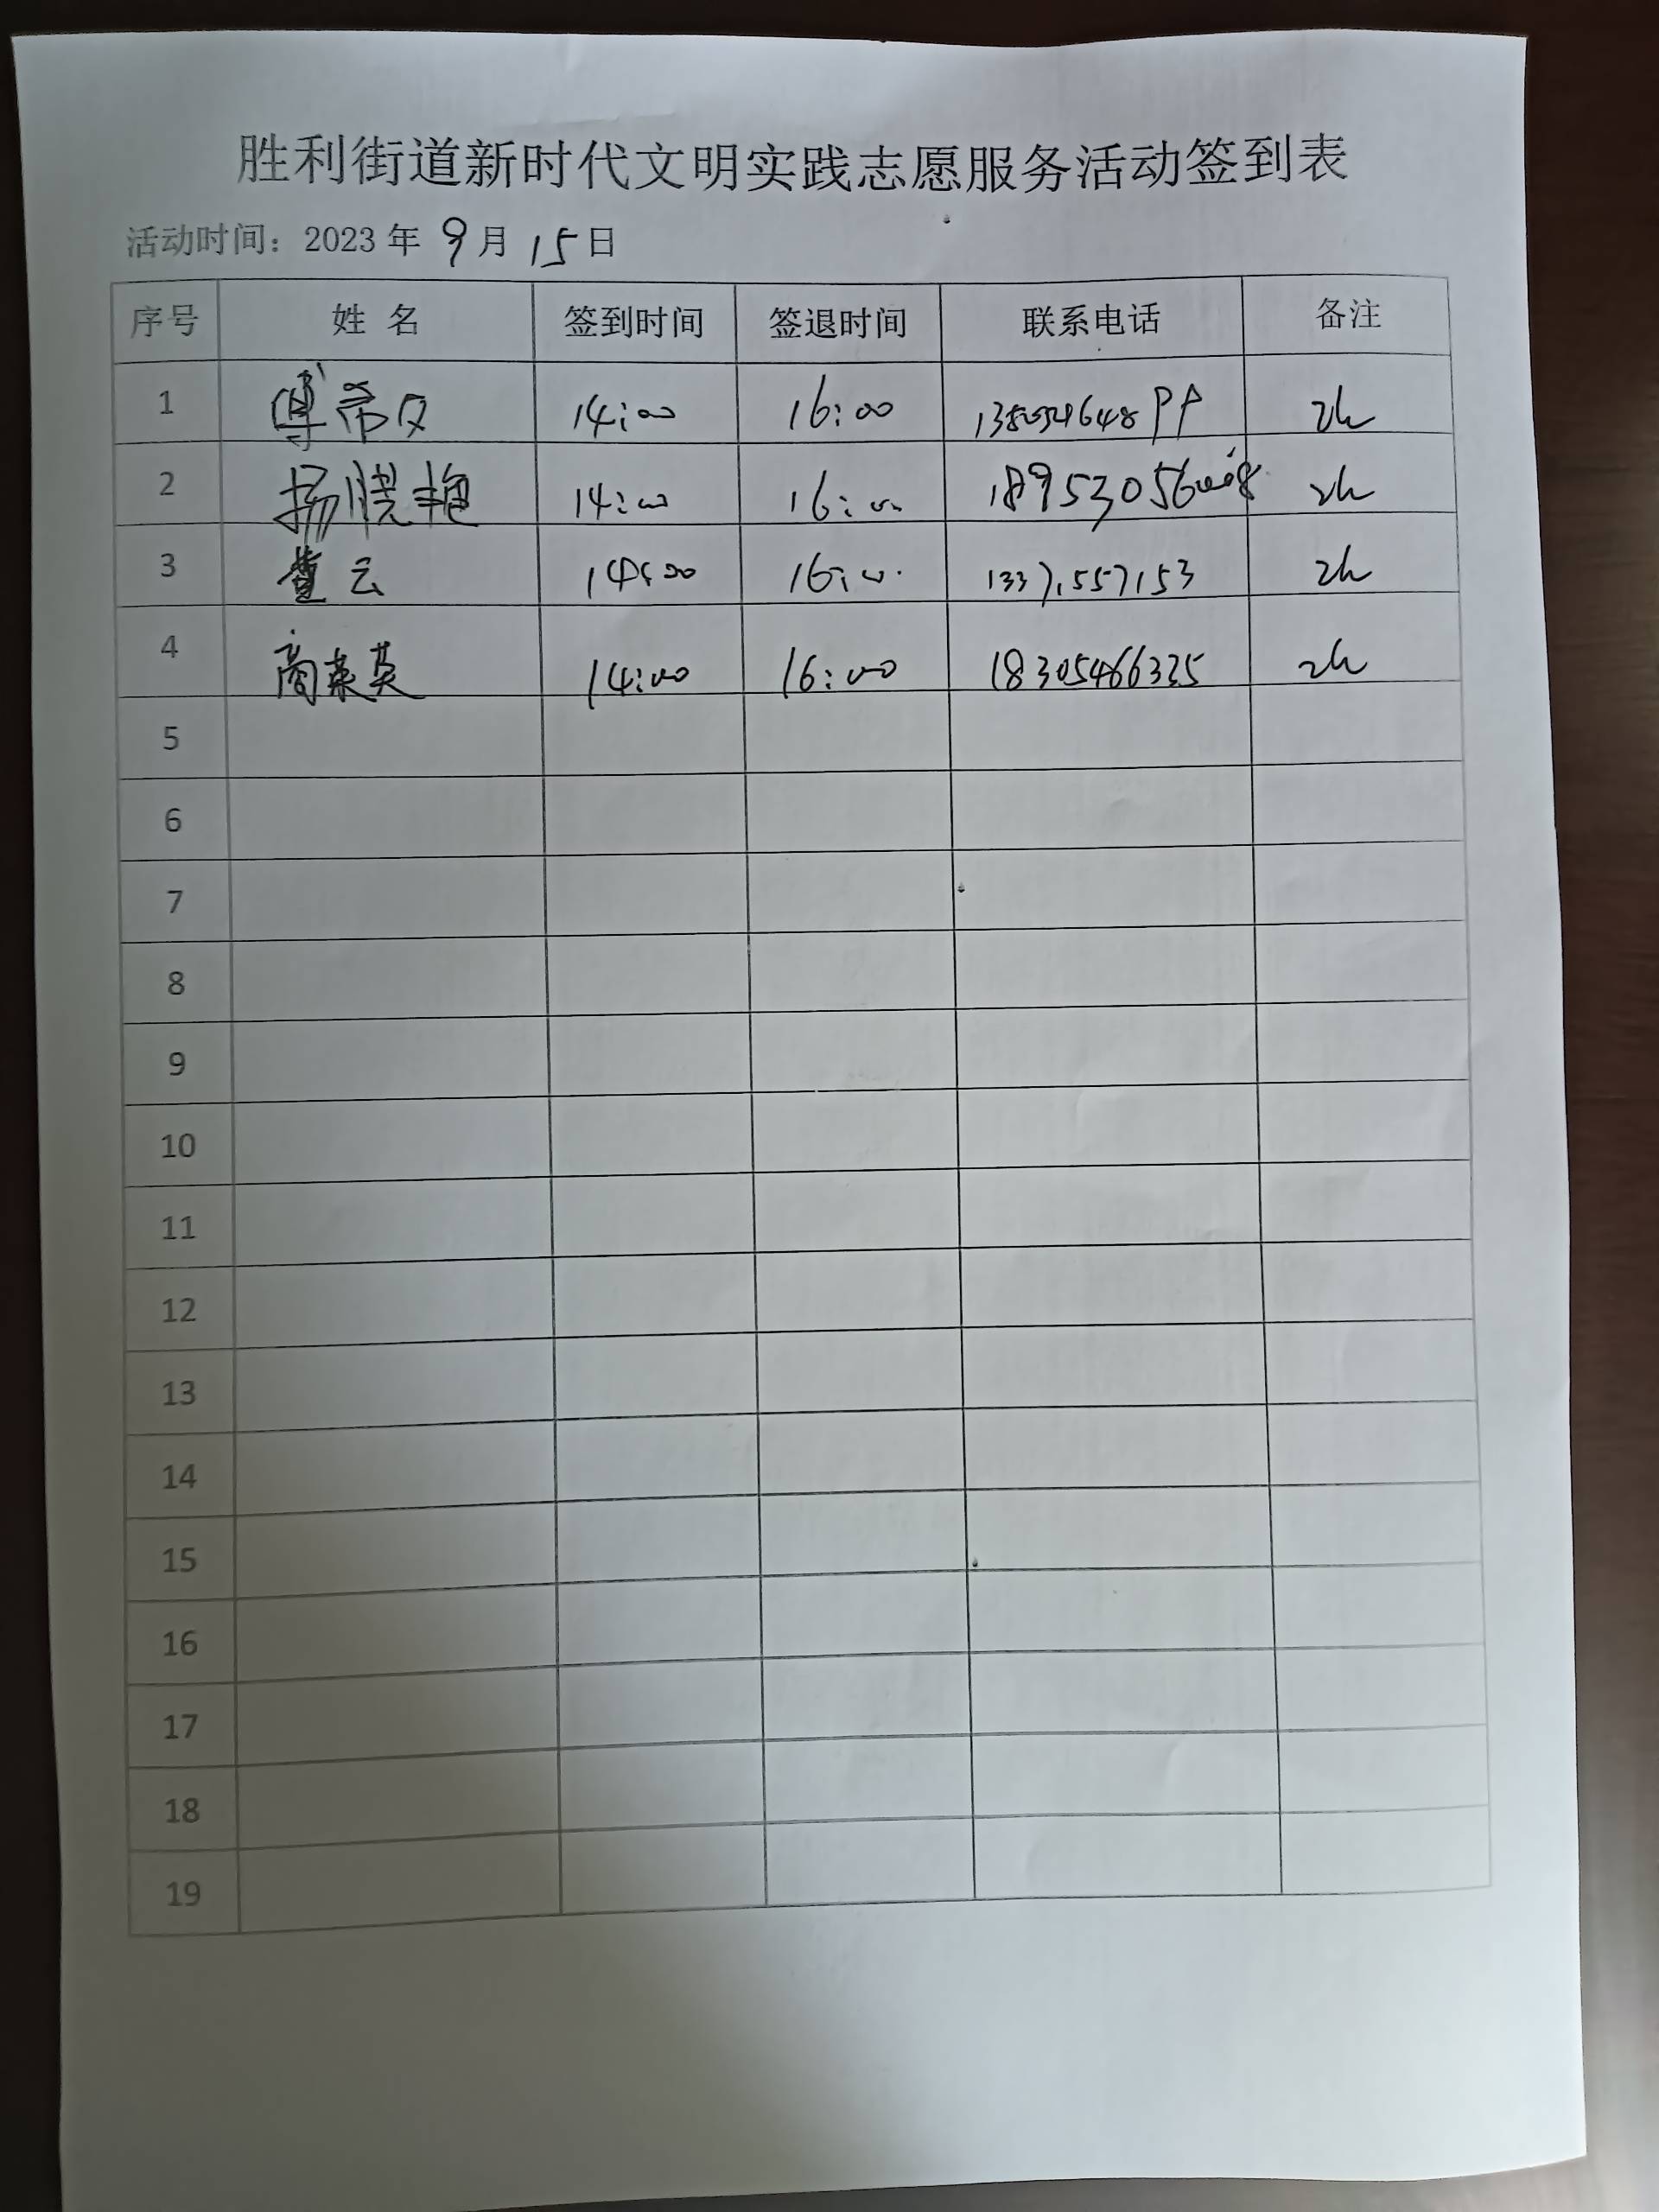 胜利街道新时代文明实践志愿服务活动签到表
活动时间：2023 年 9 月 15 日
序号 姓 名 签到时间 签退时间 联系电话 备注
1 14:00 16:00 2h
2 杨晓艳 14:00 16:00 2h
3 董云 14:00 16:00 2h
4 商来英 14:00 16:00 18305466325 2h
5
6
7
8
9
10
11
12
13
14
15
16
17
18
19